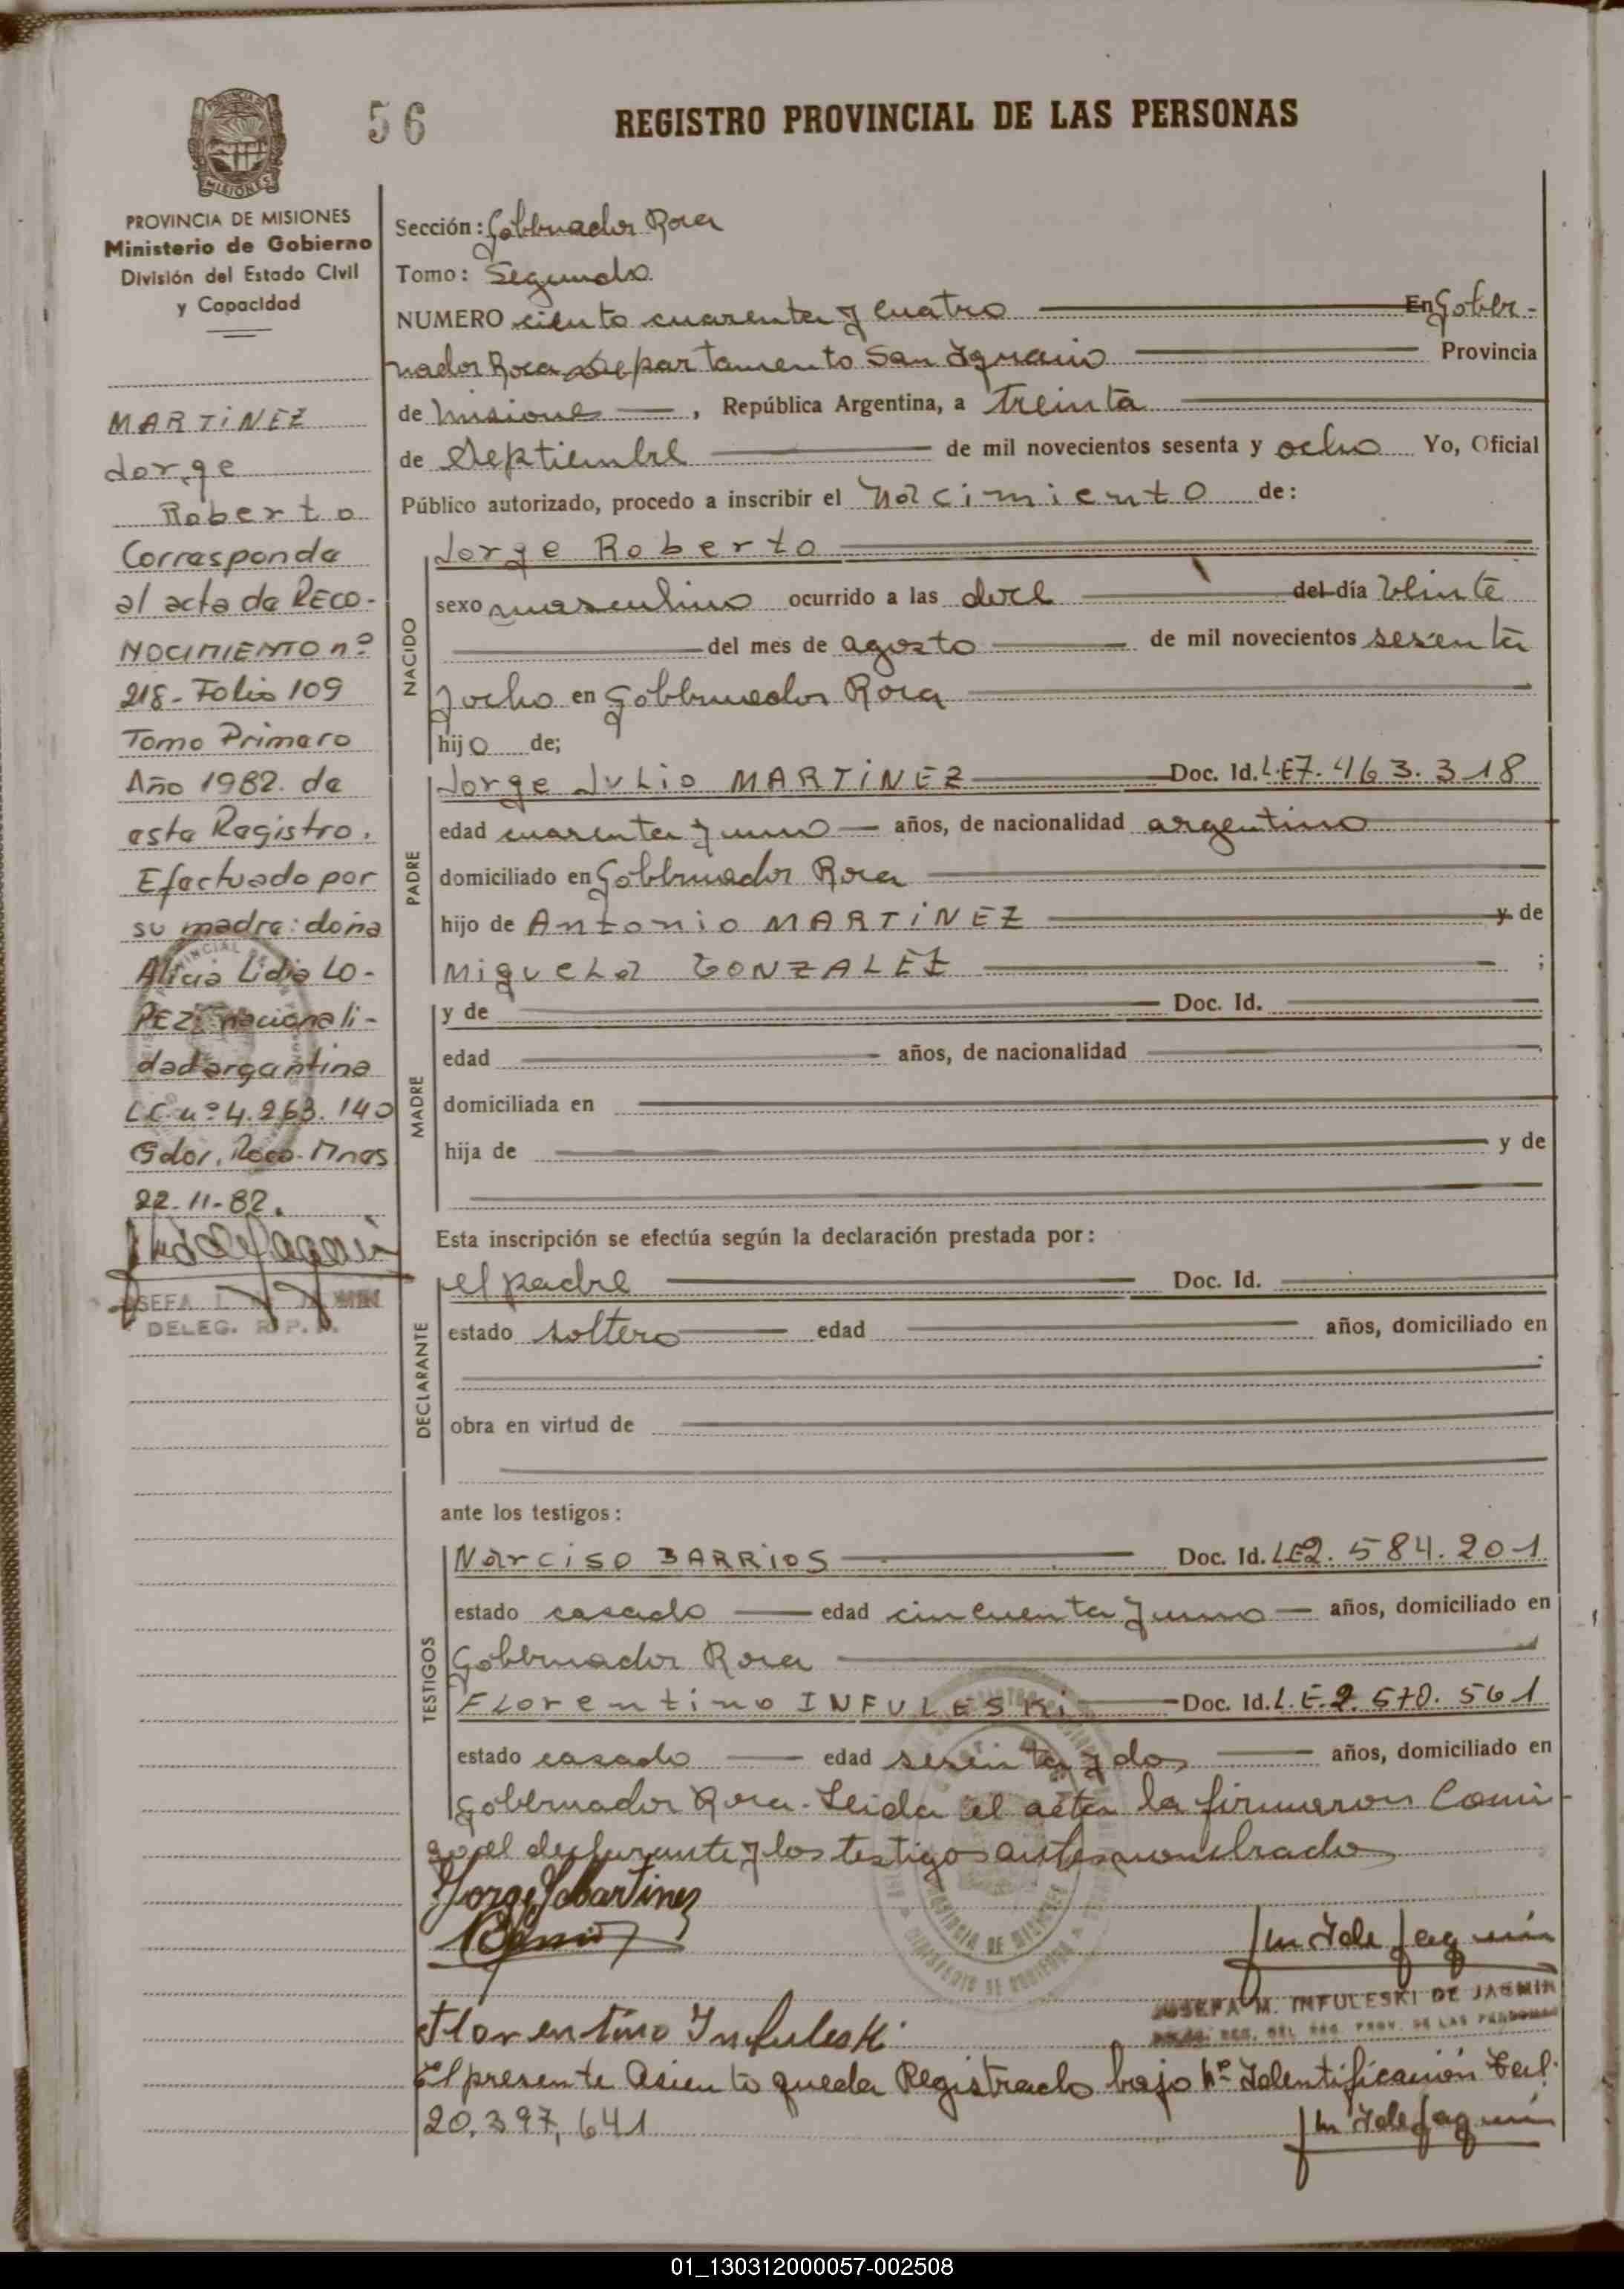 56
REGISTRO PROVINCIAL DE LAS PERSONAS
PROVINCIA DE MISIONES
Ministerio de Gobierno
División del Estado Civil
y Capacidad
MARTINEZ
Jorge
Roberto
Corresponde
al acta de RECO-
NOCIMIENTO nº
218- Folio 109
Tomo Primero
Año 1982. de
este Registro.
Efectuado por
su madre: doña
Alicia Lidia LO-
PEZ, nacionali-
dad argentina
L.C. nº 4.263.140
Gdor. Roca- Mnes
22-11-82.
DELEG. R. P.
Sección: Gobernador Roca
Tomo: Segundo
NUMERO ciento cuarenta y cuatro En Gober-
nador Roca Departamento San Ignacio Provincia
de Misiones, República Argentina, a treinta
de Septiembre de mil novecientos sesenta y ocho Yo, Oficial
Público autorizado, procedo a inscribir el Nacimiento de:
NACIDO
Jorge Roberto
sexo masculino ocurrido a las doce del día veinte
del mes de agosto de mil novecientos sesenta
y ocho en Gobernador Roca
hijo de;
PADRE
Jorge Julio MARTINEZ Doc. Id. L.E 7.463.318
edad cuarenta y uno años, de nacionalidad argentino
domiciliado en Gobernador Roca
hijo de Antonio MARTINEZ y de
Miguela GONZALEZ ;
MADRE
y de Doc. Id.
edad años, de nacionalidad
domiciliada en
hija de y de
Esta inscripción se efectúa según la declaración prestada por:
DECLARANTE
el padre Doc. Id.
estado soltero edad años, domiciliado en
obra en virtud de
ante los testigos:
TESTIGOS
Narciso BARRIOS Doc. Id. LE2.584.201
estado casado edad cincuenta y uno años, domiciliado en
Gobernador Roca
Florentino INFULESKI Doc. Id. L.E.2.570.561
estado casado edad sesenta y dos años, domiciliado en
Gobernador Roca- Leida el acta la firmaron Conmi
go el declarante y los testigos antes nombrado
Jorge J Martinez
JOSEFA M. INFULESKI DE JASMIN
Florentino Infuleski
El presente Asiento queda Registrado bajo Nº Identificación
20.397,641
01_130312000057-002508